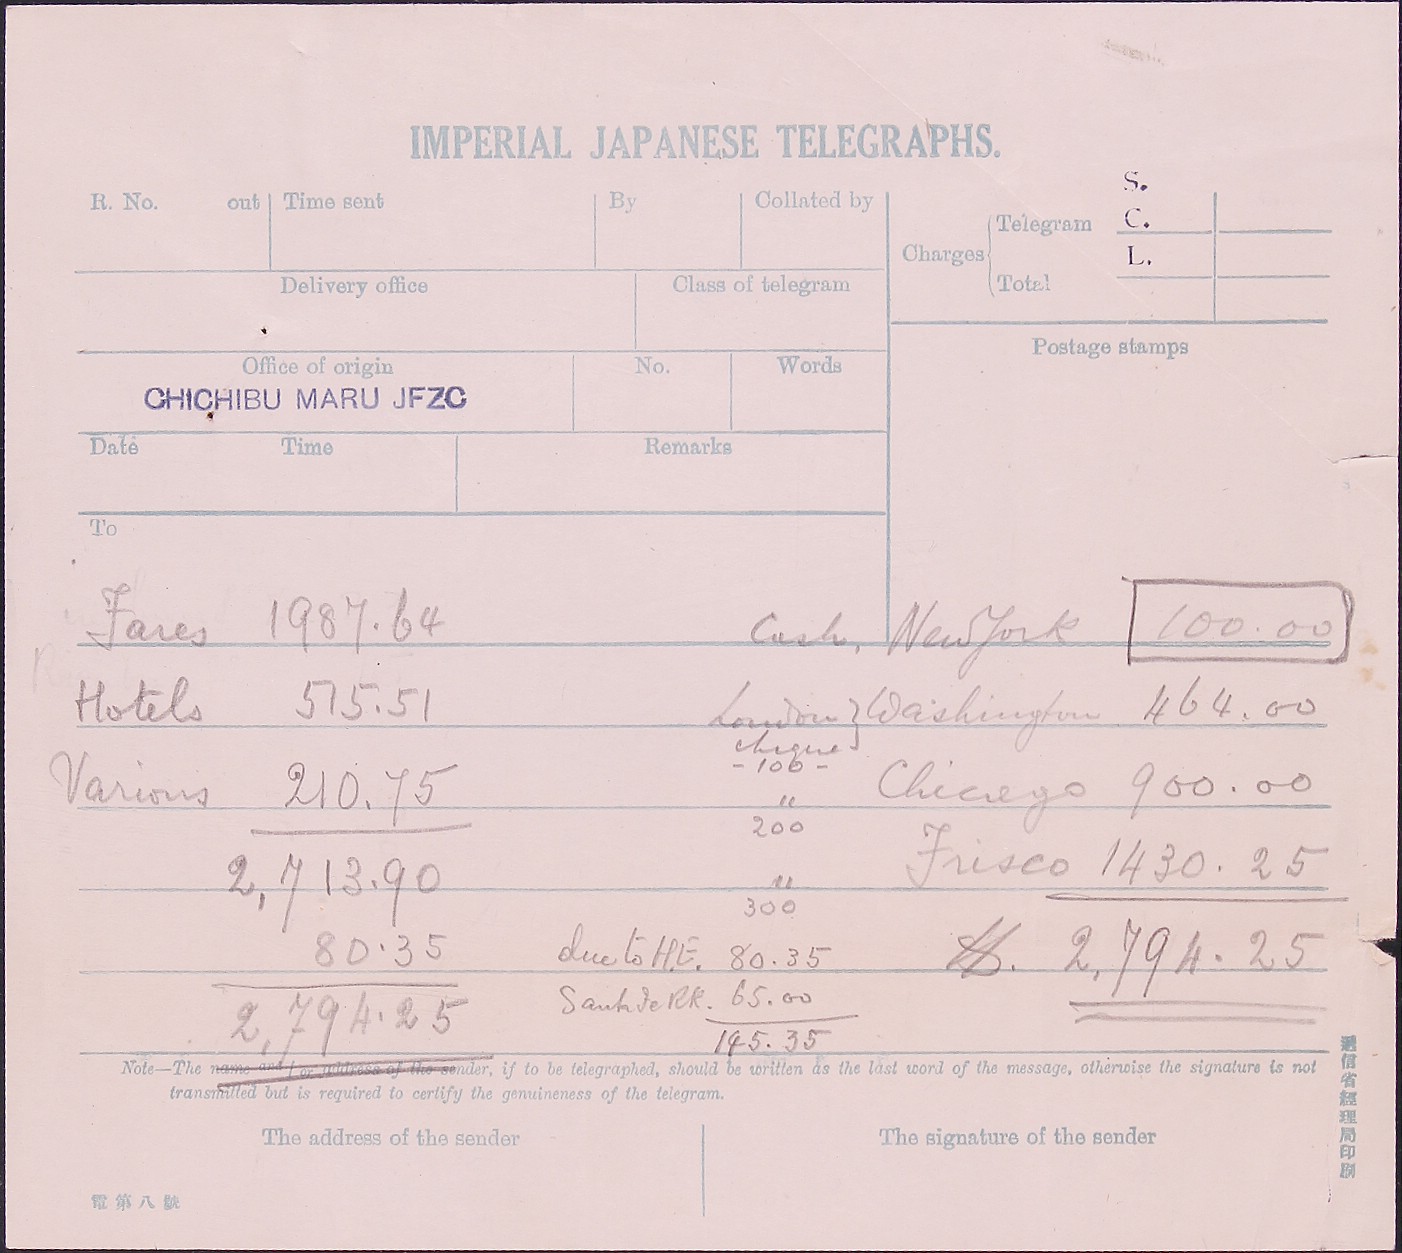 IMPERIAL JAPANESE TELEGRAPHS.
R. No. out Time sent By Collated by
Charges Telegram Total
S.
C.
L.
Delivery office Class of telegram
Postage stamps
Office of origin No. Words
CHICHIBU MARU JFZC
Date Time Remarks
To
Fares 1987.64 Cash, New York 100.00
Hotels 515.51 London cheque -100- } Washington 464.00
Various 210.75 " 200 Chicago 900.00
2,713.90 " 300 Frisco 1430.25
80.35 due to H.E. 80.35 $. 2,794.25
2,794.25 Santa Fe RR. 65.00
145.35
Note—The name and/or address of the sender, if to be telegraphed, should be written as the last word of the message, otherwise the signature is not
transmitted but is required to certify the genuineness of the telegram.
The address of the sender The signature of the sender
電第八號
遞信省經理局印刷